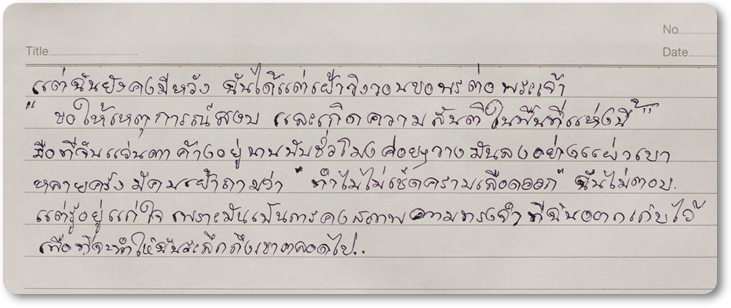 No
Title
Date
แต่ฉันยังคงมีหวัง ฉันได้แต่เฝ้าวิงวอนขอพรต่อพระเจ้า
" ขอให้เหตุการณ์สงบ และเกิดความสันติในพื้นที่แห่งนี้ "
มือที่ฉันแว่นตาค้างอยู่นานนับชั่วโมง ค่อยๆวางมันลงอย่างแผ่วเบา
หลายครั้ง มีคนเฝ้าถามว่า " ทำไมไม่เช็ดคราบเลือดออก " ฉันไม่ตอบ.
แต่รู้อยู่แก่ใจ เพราะมันเป็นการคงสภาพความทรงจำ ที่ฉันอยากเก็บไว้
เพื่อที่จะทำให้ฉันระลึกถึงเขาตลอดไป..